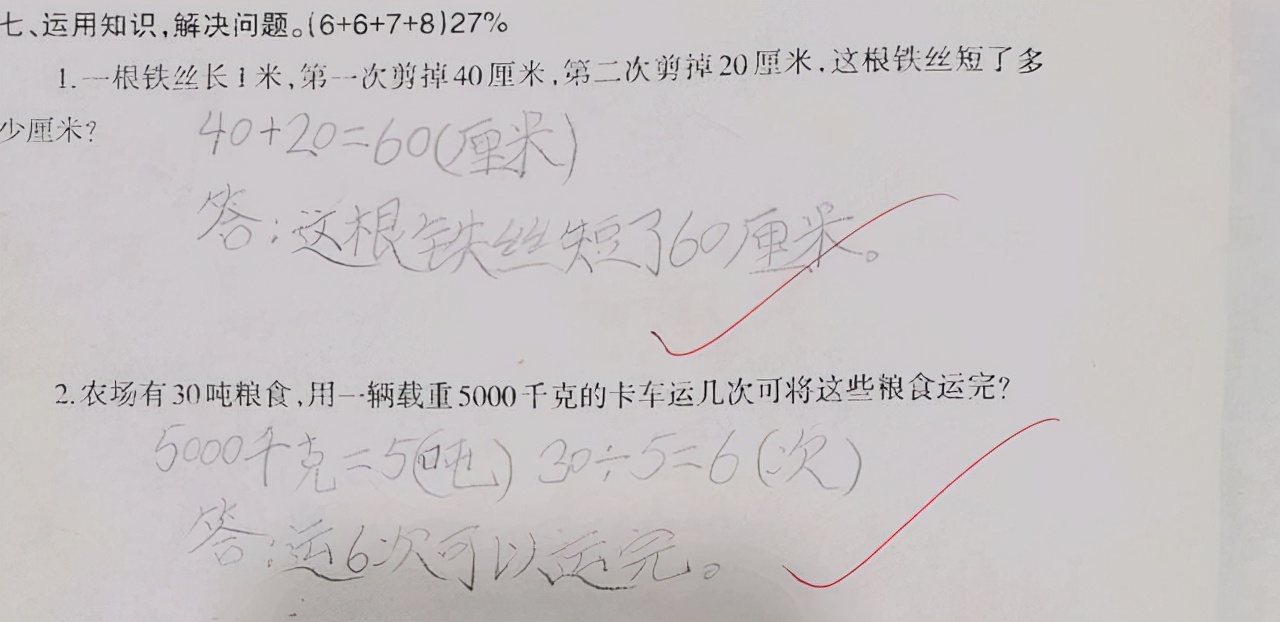 七、运用知识,解决问题。(6+6+7+8)27%
1.一根铁丝长1米,第一次剪掉40厘米,第二次剪掉20厘米,这根铁丝短了多
少厘米?
40+20=60(厘米)
答:这根铁丝短了60厘米。
2.农场有30吨粮食,用一辆载重5000千克的卡车运几次可将这些粮食运完?
5000千克=5(吨) 30÷5=6(次)
答:运6次可以运完。